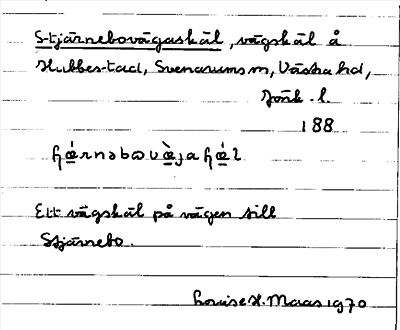 Stjärnebovägaskäl, vägskäl å
Hubbestad, Svenarums sn, Västra hd,
Jönk. l.
188
Ett vägskäl på vägen till
Stjärnebo.
Louise H. Maas 1970